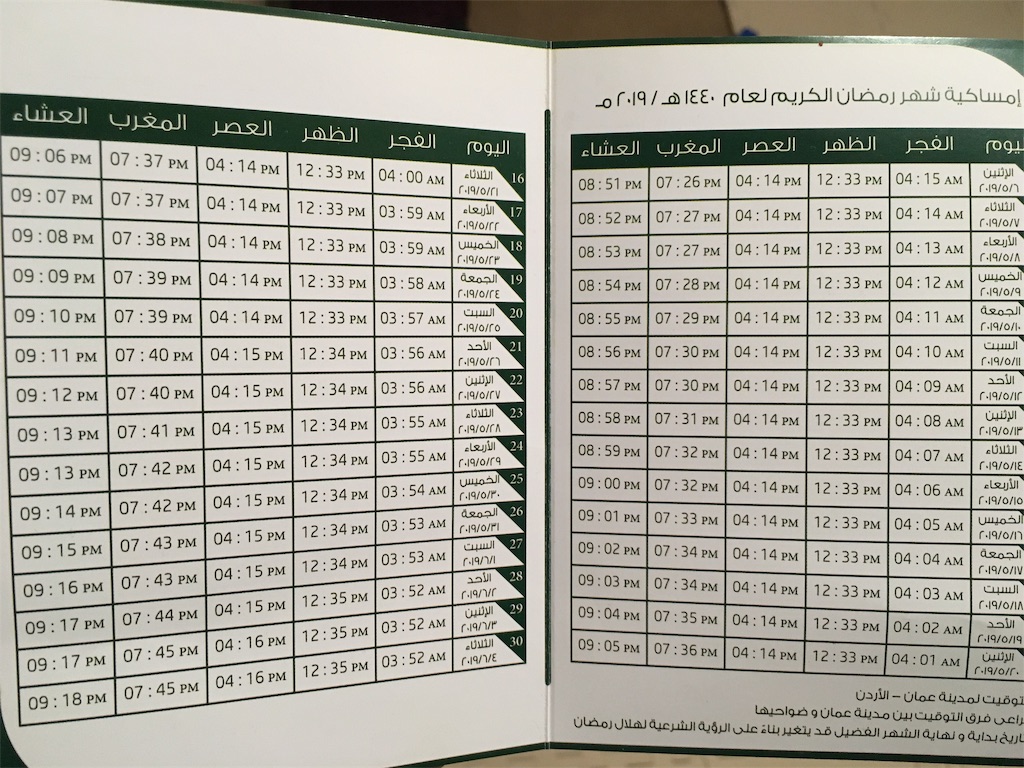 إمساكية شهر رمضان الكريم لعام ١٤٤٠ هـ / ٢٠١٩ مـ
ليوم الفجر الظهر العصر المغرب العشاء
الإثنين ٢٠١٩/٥/٦ 04:15 AM 12:33 PM 04:14 PM 07:26 PM 08:51 PM
الثلاثاء ٢٠١٩/٥/٧ 04:14 AM 12:33 PM 04:14 PM 07:27 PM 08:52 PM
الأربعاء ٢٠١٩/٥/٨ 04:13 AM 12:33 PM 04:14 PM 07:27 PM 08:53 PM
الخميس ٢٠١٩/٥/٩ 04:12 AM 12:33 PM 04:14 PM 07:28 PM 08:54 PM
الجمعة ٢٠١٩/٥/١٠ 04:11 AM 12:33 PM 04:14 PM 07:29 PM 08:55 PM
السبت ٢٠١٩/٥/١١ 04:10 AM 12:33 PM 04:14 PM 07:30 PM 08:56 PM
الأحد ٢٠١٩/٥/١٢ 04:09 AM 12:33 PM 04:14 PM 07:30 PM 08:57 PM
الإثنين ٢٠١٩/٥/١٣ 04:08 AM 12:33 PM 04:14 PM 07:31 PM 08:58 PM
الثلاثاء ٢٠١٩/٥/١٤ 04:07 AM 12:33 PM 04:14 PM 07:32 PM 08:59 PM
الأربعاء ٢٠١٩/٥/١٥ 04:06 AM 12:33 PM 04:14 PM 07:32 PM 09:00 PM
الخميس ٢٠١٩/٥/١٦ 04:05 AM 12:33 PM 04:14 PM 07:33 PM 09:01 PM
الجمعة ٢٠١٩/٥/١٧ 04:04 AM 12:33 PM 04:14 PM 07:34 PM 09:02 PM
السبت ٢٠١٩/٥/١٨ 04:03 AM 12:33 PM 04:14 PM 07:34 PM 09:03 PM
الأحد ٢٠١٩/٥/١٩ 04:02 AM 12:33 PM 04:14 PM 07:35 PM 09:04 PM
الإثنين ٢٠١٩/٥/٢٠ 04:01 AM 12:33 PM 04:14 PM 07:36 PM 09:05 PM
توقيت لمدينة عمان – الأردن
راعى فرق التوقيت بين مدينة عمان و ضواحيها
تاريخ بداية و نهاية الشهر الفضيل قد يتغير بناءً على الرؤية الشرعية لهلال رمضان
اليوم الفجر الظهر العصر المغرب العشاء
16 الثلاثاء ٢٠١٩/٥/٢١ 04:00 AM 12:33 PM 04:14 PM 07:37 PM 09:06 PM
17 الأربعاء ٢٠١٩/٥/٢٢ 03:59 AM 12:33 PM 04:14 PM 07:37 PM 09:07 PM
18 الخميس ٢٠١٩/٥/٢٣ 03:59 AM 12:33 PM 04:14 PM 07:38 PM 09:08 PM
19 الجمعة ٢٠١٩/٥/٢٤ 03:58 AM 12:33 PM 04:14 PM 07:39 PM 09:09 PM
20 السبت ٢٠١٩/٥/٢٥ 03:57 AM 12:33 PM 04:14 PM 07:39 PM 09:10 PM
21 الأحد ٢٠١٩/٥/٢٦ 03:56 AM 12:34 PM 04:15 PM 07:40 PM 09:11 PM
22 الإثنين ٢٠١٩/٥/٢٧ 03:56 AM 12:34 PM 04:15 PM 07:40 PM 09:12 PM
23 الثلاثاء ٢٠١٩/٥/٢٨ 03:55 AM 12:34 PM 04:15 PM 07:41 PM 09:13 PM
24 الأربعاء ٢٠١٩/٥/٢٩ 03:55 AM 12:34 PM 04:15 PM 07:42 PM 09:13 PM
25 الخميس ٢٠١٩/٥/٣٠ 03:54 AM 12:34 PM 04:15 PM 07:42 PM 09:14 PM
26 الجمعة ٢٠١٩/٥/٣١ 03:53 AM 12:34 PM 04:15 PM 07:43 PM 09:15 PM
27 السبت ٢٠١٩/٦/١ 03:53 AM 12:34 PM 04:15 PM 07:43 PM 09:16 PM
28 الأحد ٢٠١٩/٦/٢ 03:52 AM 12:35 PM 04:15 PM 07:44 PM 09:17 PM
29 الإثنين ٢٠١٩/٦/٣ 03:52 AM 12:35 PM 04:16 PM 07:45 PM 09:17 PM
30 الثلاثاء ٢٠١٩/٦/٤ 03:52 AM 12:35 PM 04:16 PM 07:45 PM 09:18 PM